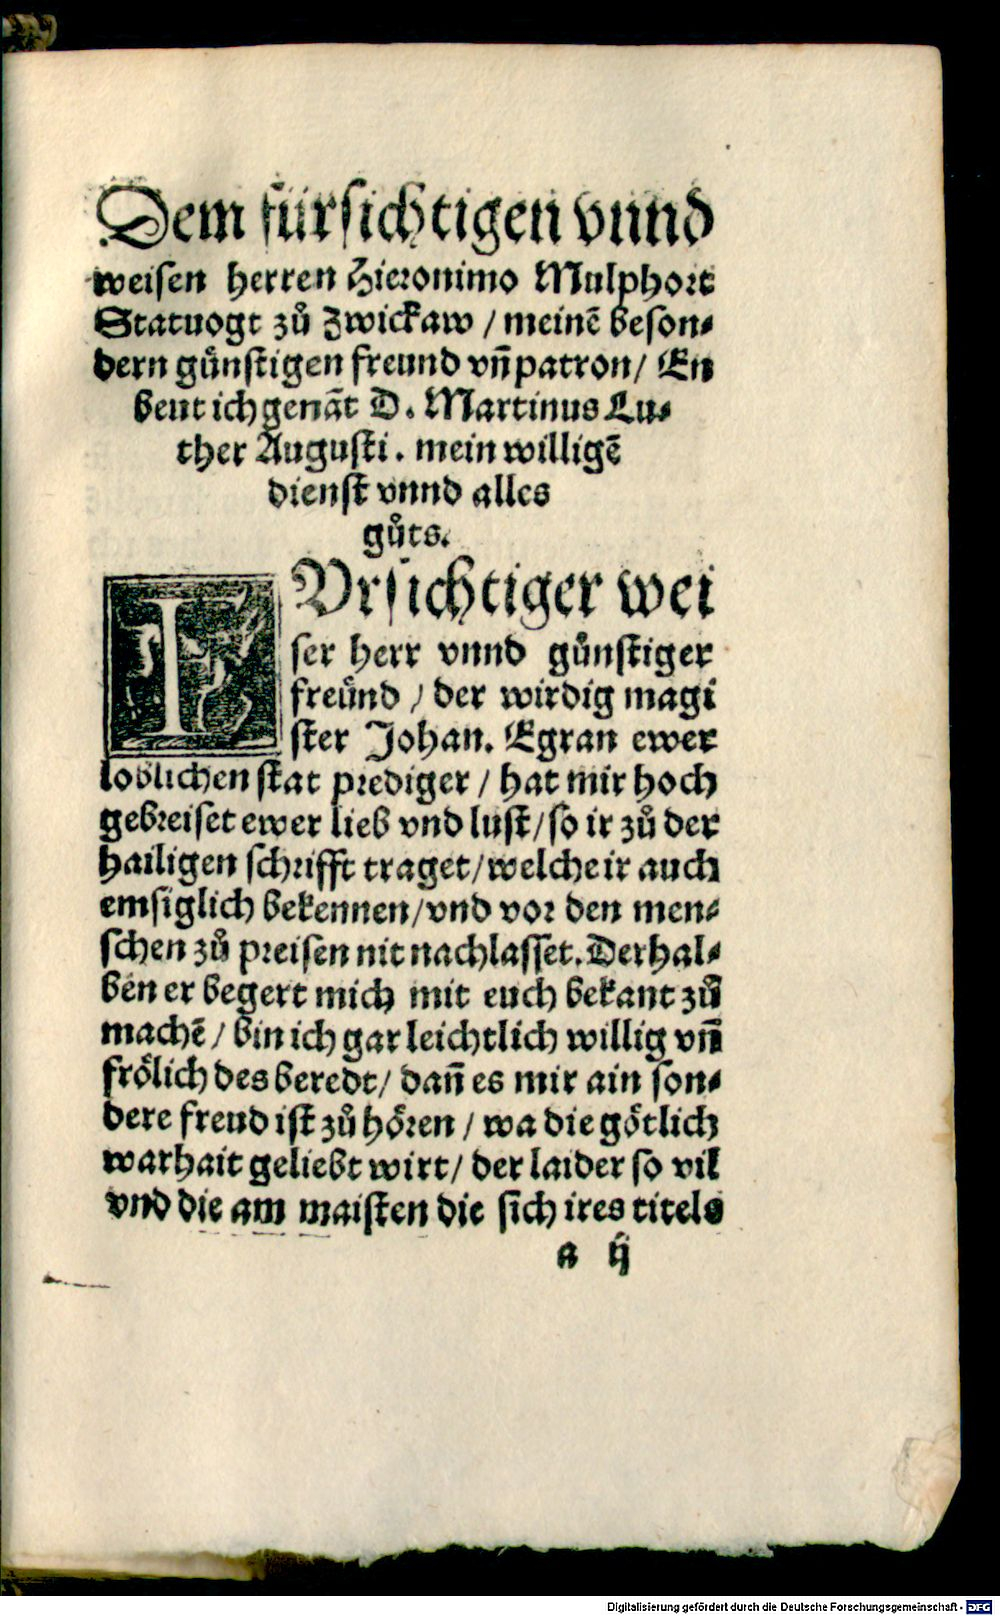 Dem fürsichtigen vnnd
weisen herren Hieronimo Mulphort
Statuogt zů Zwickaw / meinē beson⸗
dern gůnstigen freund vñ patron / En
beut ich genāt D. Martinus Lu⸗
ther Augusti. mein willigē
dienst vnnd alles
gůts.
FVrsichtiger wei
ser herr vnnd gůnstiger
freůnd / der wirdig magi
ster Johan. Egran ewer
loblichen stat prediger / hat mir hoch
gebreiset ewer lieb vnd lust / so ir zů der
hailigen schrifft traget / welche ir auch
emsiglich bekennen / vnd vor den men⸗
schen zů preisen nit nachlasset. Derhal⸗
ben er begert mich mit euch bekant zů
machē / bin ich gar leichtlich willig vñ
frölich des beredt / dañ es mir ain son⸗
dere freud ist zů hören / wa die götlich
warhait geliebt wirt / der laider so vil
vnd die am maisten die sich ires titels
a ij
Digitalisierung gefördert durch die Deutsche Forschungsgemeinschaft - DFG